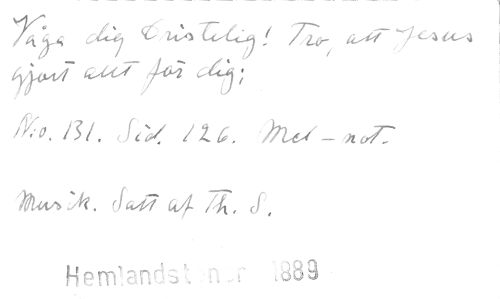 Våga dig Dristelig! Tro, att Jesus
gjort allt för dig;
N:o. 131. Sid. 126. Med - not.
Musik. Satt af Th. S.
Hemlandstoner 1889